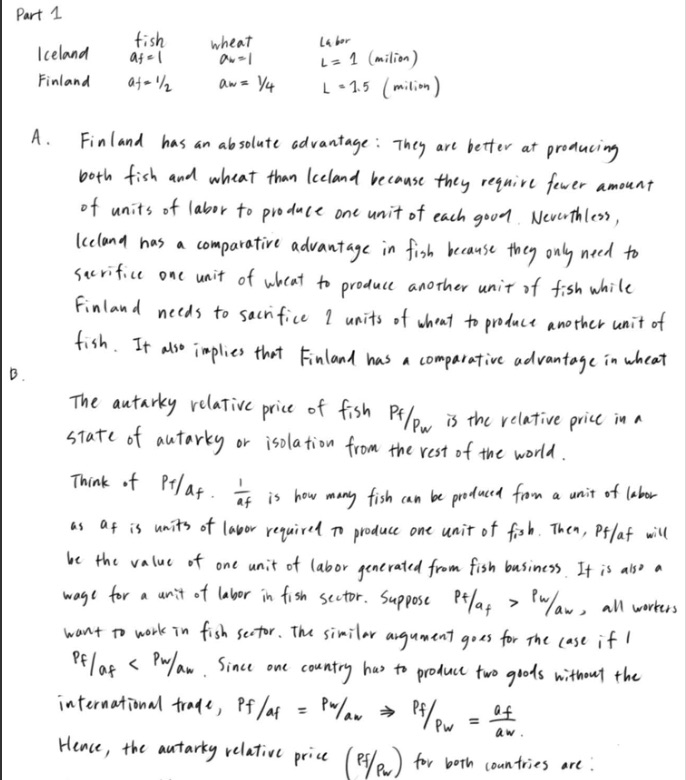 Part 1
fish wheat Labor
Iceland af=1 aw=1 L= 1 (milion)
Finland af=1/2 aw= 1/4 L = 1.5 (milion)
A. Finland has an absolute advantage: They are better at producing
both fish and wheat than Iceland because they require fewer amount
of units of labor to produce one unit of each good. Nevertheless,
Iceland has a comparative advantage in fish because they only need to
sacrifice one unit of wheat to produce another unit of fish while
Finland needs to sacrifice 2 units of wheat to produce another unit of
fish. It also implies that Finland has a comparative advantage in wheat
B.
The autarky relative price of fish Pf/Pw is the relative price in a
state of autarky or isolation from the rest of the world.
Think of Pf/af. 1/af is how many fish can be produced from a unit of labor
as af is units of labor required to produce one unit of fish. Then, Pf/af will
be the value of one unit of labor generated from fish business. It is also a
wage for a unit of labor in fish sector. Suppose Pf/af > Pw/aw, all workers
want to work in fish sector. The similar argument goes for the case if
Pf/af < Pw/aw. Since one country has to produce two goods without the
international trade, Pf/af = Pw/aw ⇒ Pf/Pw = af/aw.
Hence, the autarky relative price (Pf/Pw) for both countries are: